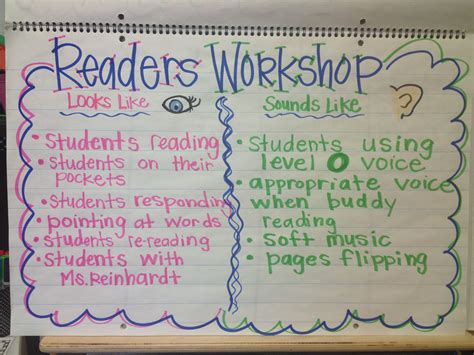 Readers Workshop
Looks Like
• Students reading
• Students on their
pockets
• Students responding
• pointing at words
• students re-reading
• Students with
Ms. Reinhardt
Sounds Like
• Students using
level 0 voice
• appropriate voice
when buddy
reading
• Soft music
• pages flipping